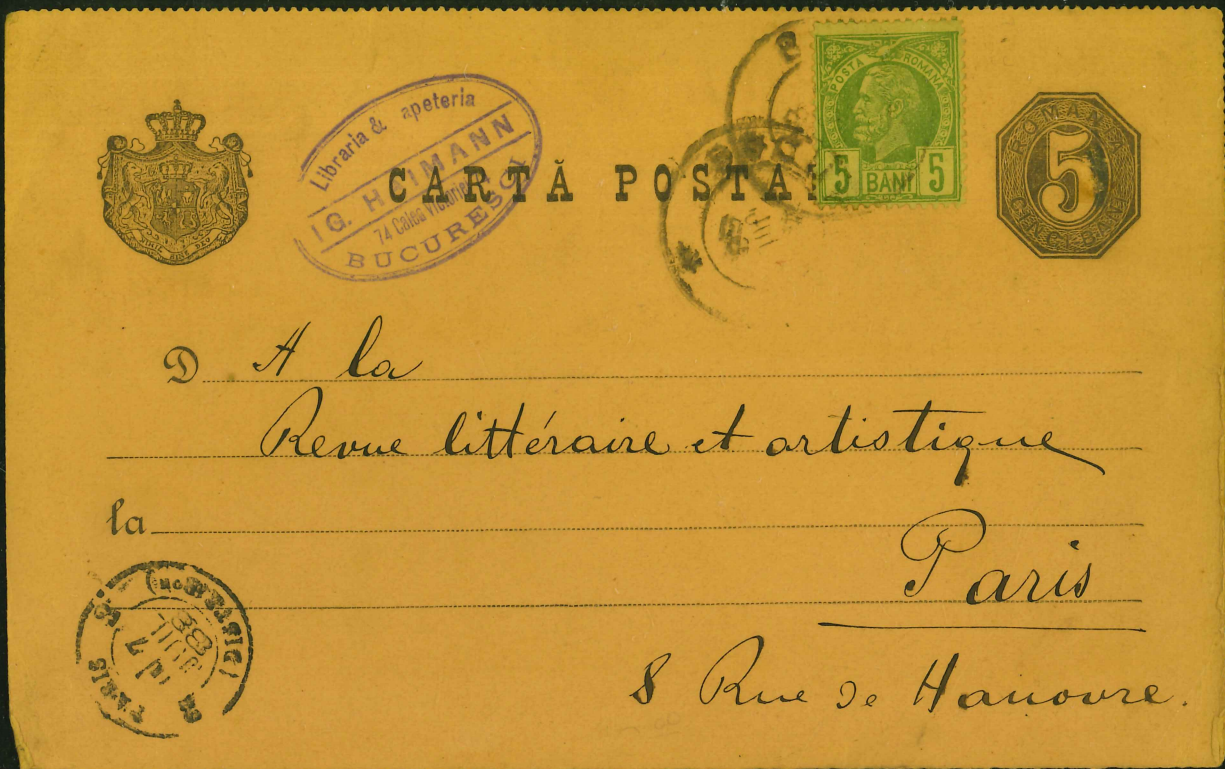 Libraria & apeteria
IG. HAIMANN
74 Calea Victoriei
BUCURESCI
CARTĂ POSTA
POSTA ROMANA
5 BANI 5
ROMANIA
5
CINCI BANI
NIHIL SINE DEO
D A la
Revue littéraire et artistique
la
Paris
8 Rue de Hanovre.
PARIS
7
JUIL
88